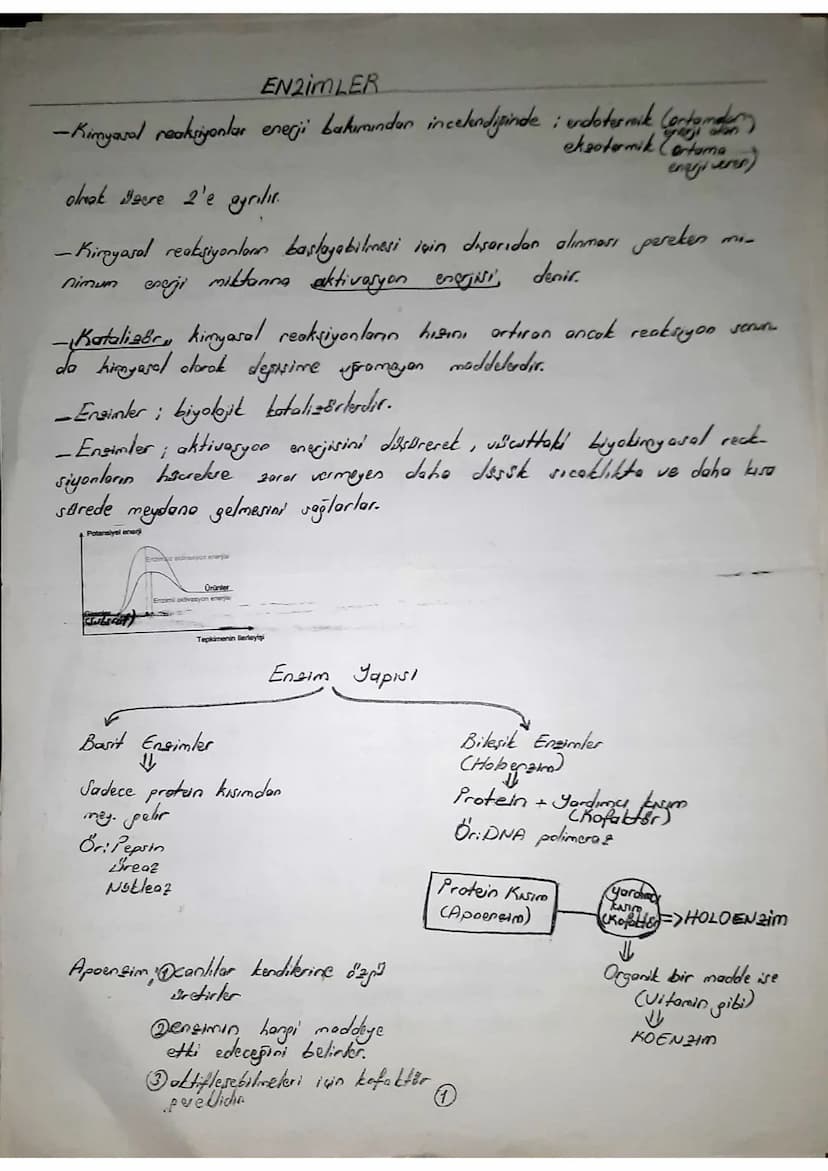 ENZİMLER
- Kimyasal reaksiyonlar enerji bakımından incelendiğinde ; endotermik (ortamdan enerji alan)
ekzotermik (ortama enerji veren)
olmak üzere 2'e ayrılır.
- Kimyasal reaksiyonların başlayabilmesi için dışarıdan alınması gereken mi-
nimum enerji miktarına "aktivasyon enerjisi" denir.
- "Katalizör" kimyasal reaksiyonların hızını artıran ancak reaksiyon sonun-
da kimyasal olarak değişime uğramayan maddelerdir.
- Enzimler ; biyolojik katalizörlerdir.
- Enzimler ; aktivasyon enerjisini düşürerek, vücuttaki biyokimyasal reak-
siyonların hücrelere zarar vermeyen daha düşük sıcaklıkta ve daha kısa
sürede meydana gelmesini sağlarlar.
Potansiyel enerji
Enzimsiz aktivasyon enerjisi
Ürünler
Enzimli aktivasyon enerjisi
(Substrat)
Tepkimenin ilerleyişi
Enzim Yapısı
Basit Enzimler
Sadece protein kısımdan
mey. gelir
Ör: Pepsin
Üreaz
Nükleaz
Bileşik Enzimler
(Holoenzim)
Protein + Yardımcı kısım
(Kofaktör)
Ör: DNA polimeraz
Protein Kısım
(Apoenzim)
Yardımcı
kısım
(Kofaktör)
=> HOLOENZİM
Organik bir madde ise
(Vitamin gibi)
KOENZİM
Apoenzim; ① canlılar kendilerine özgü
üretirler
② enzimin hangi maddeye
etki edeceğini belirler.
③ aktifleşebilmeleri için kofaktör
gereklidir
①